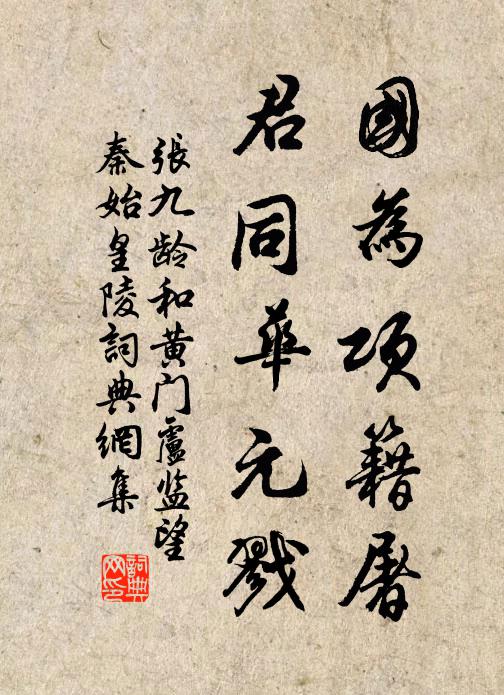 國為項籍屠
君同華元戮
張九龄和黄门盧监望
秦始皇陵詞典網集
詞典网印